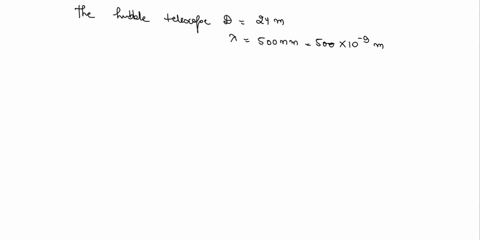 the hubble telescope D = 24 m
λ = 500nm = 500 × 10⁻⁹ m